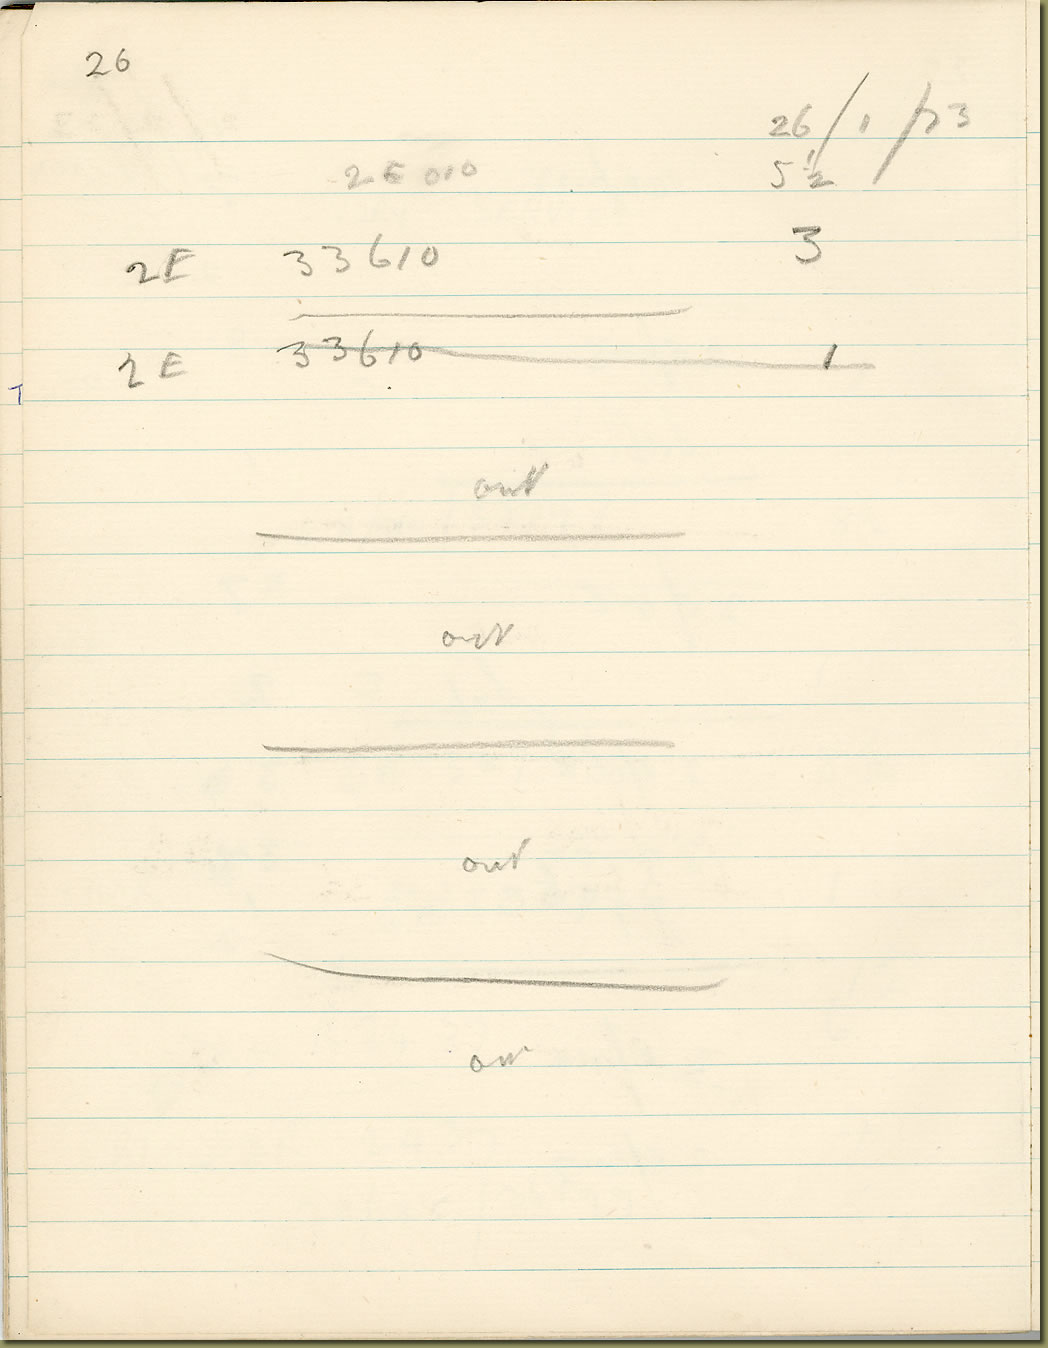 26
26/1/23
5 1/2
2E 010
2E 33610 3
2E 33610 1
out
out
out
out